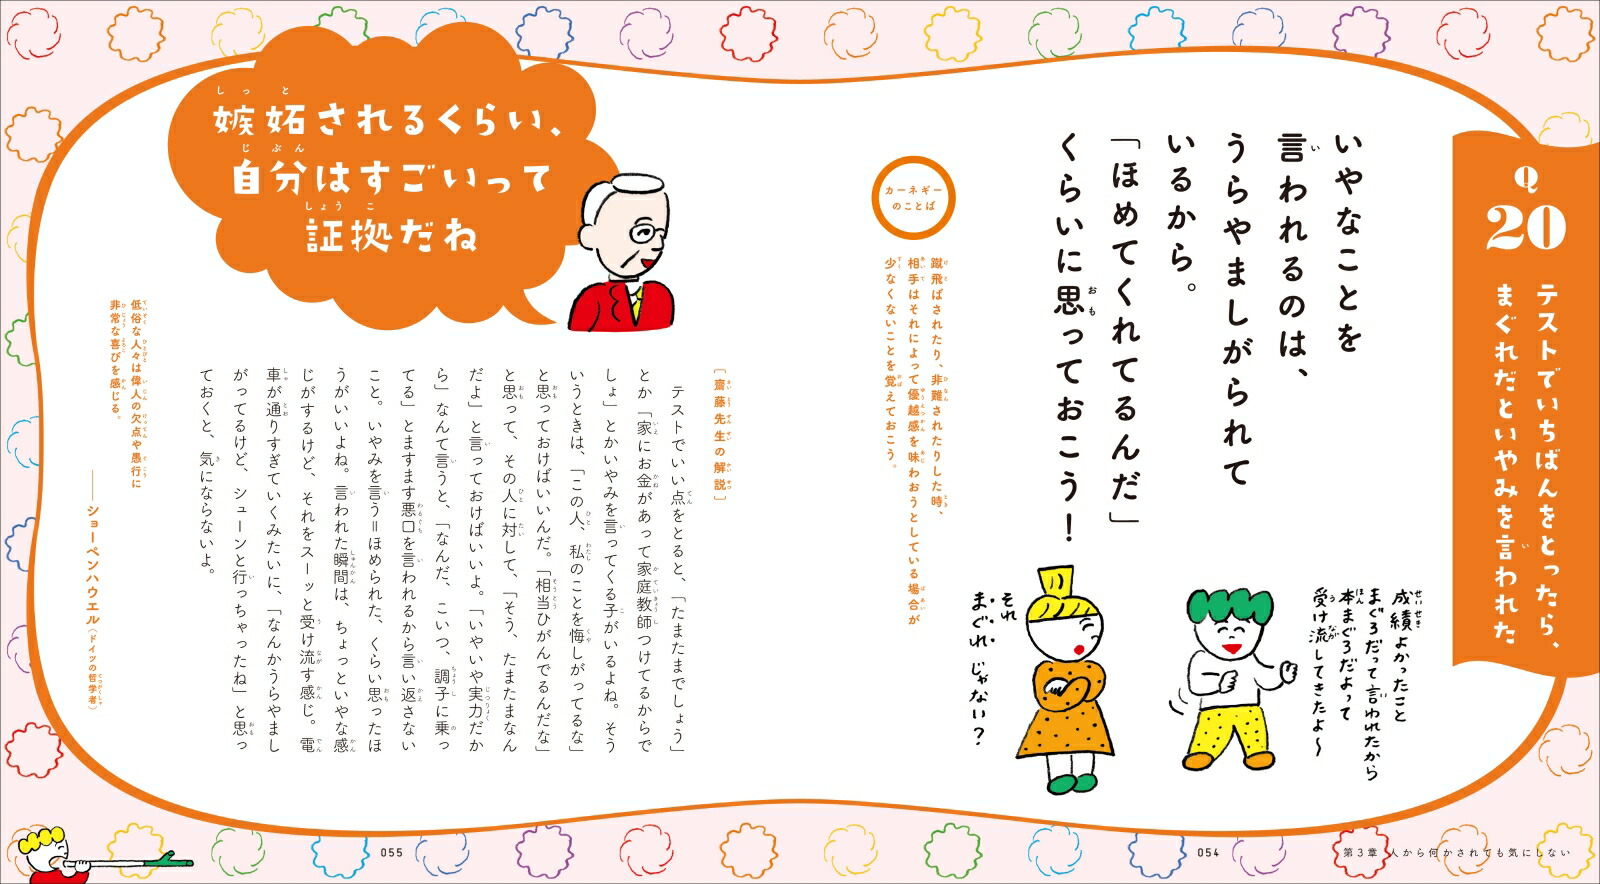 Q
20
テストでいちばんをとったら、
まぐれだといやみを言われた
いやなことを
言われるのは、
うらやましがられて
いるから。
「ほめてくれてるんだ」
くらいに思っておこう！
成績よかったこと
まぐろだって言われたから
本まぐろだよって
受け流してきたよ〜
それ
まぐれじゃない？
カーネギー
のことば
蹴飛ばされたり、非難されたりした時、
相手はそれによって優越感を味わおうとしている場合が
少なくないことを覚えておこう。
第3章 人から何かされても気にしない
054
嫉妬されるくらい、
自分はすごいって
証拠だね
［齋藤先生の解説］
テストでいい点をとると、「たまたまでしょう」
とか「家にお金があって家庭教師つけてるからで
しょ」とかいやみを言ってくる子がいるよね。そう
いうときは、「この人、私のことを悔しがってるな」
と思っておけばいいんだ。「相当ひがんでるんだな」
と思って、その人に対して、「そう、たまたまなん
だよ」と言っておけばいいよ。「いやいや実力だか
ら」なんて言うと、「なんだ、こいつ、調子に乗っ
てる」とますます悪口を言われるから言い返さない
こと。いやみを言う＝ほめられた、くらい思ったほ
うがいいよね。言われた瞬間は、ちょっといやな感
じがするけど、それをスーッと受け流す感じ。電
車が通りすぎていくみたいに、「なんかうらやまし
がってるけど、シューンと行っちゃったね」と思っ
ておくと、気にならないよ。
低俗な人々は偉人の欠点や愚行に
非常な喜びを感じる。
――ショーペンハウエル（ドイツの哲学者）
055